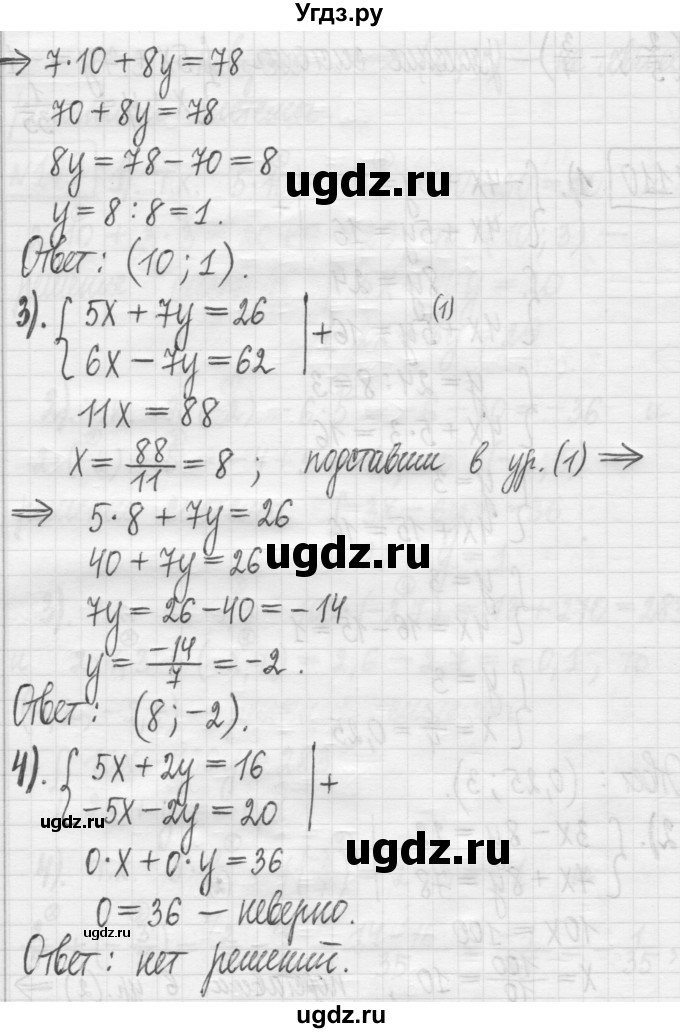 Угдз.ру
⇒ 7·10 + 8y = 78
70 + 8y = 78
8y = 78 – 70 = 8
ugdz.ru
y = 8 : 8 = 1.
Ответ: (10 ; 1).
3). { 5x + 7y = 26 | + (1)
6x – 7y = 62
11x = 88
x = 88/11 = 8 ; подставим в ур. (1) ⇒
⇒ 5·8 + 7y = 26
40 + 7y = 26
ugdz.ru
7y = 26 – 40 = – 14
y = –14/7 = –2 .
Ответ: (8 ; –2).
4). { 5x + 2y = 16 | +
–5x – 2y = 20
ugdz.ru
0·x + 0·y = 36
ugdz.ru
0 = 36 – неверно.
ugdz.ru
Ответ: нет решений.